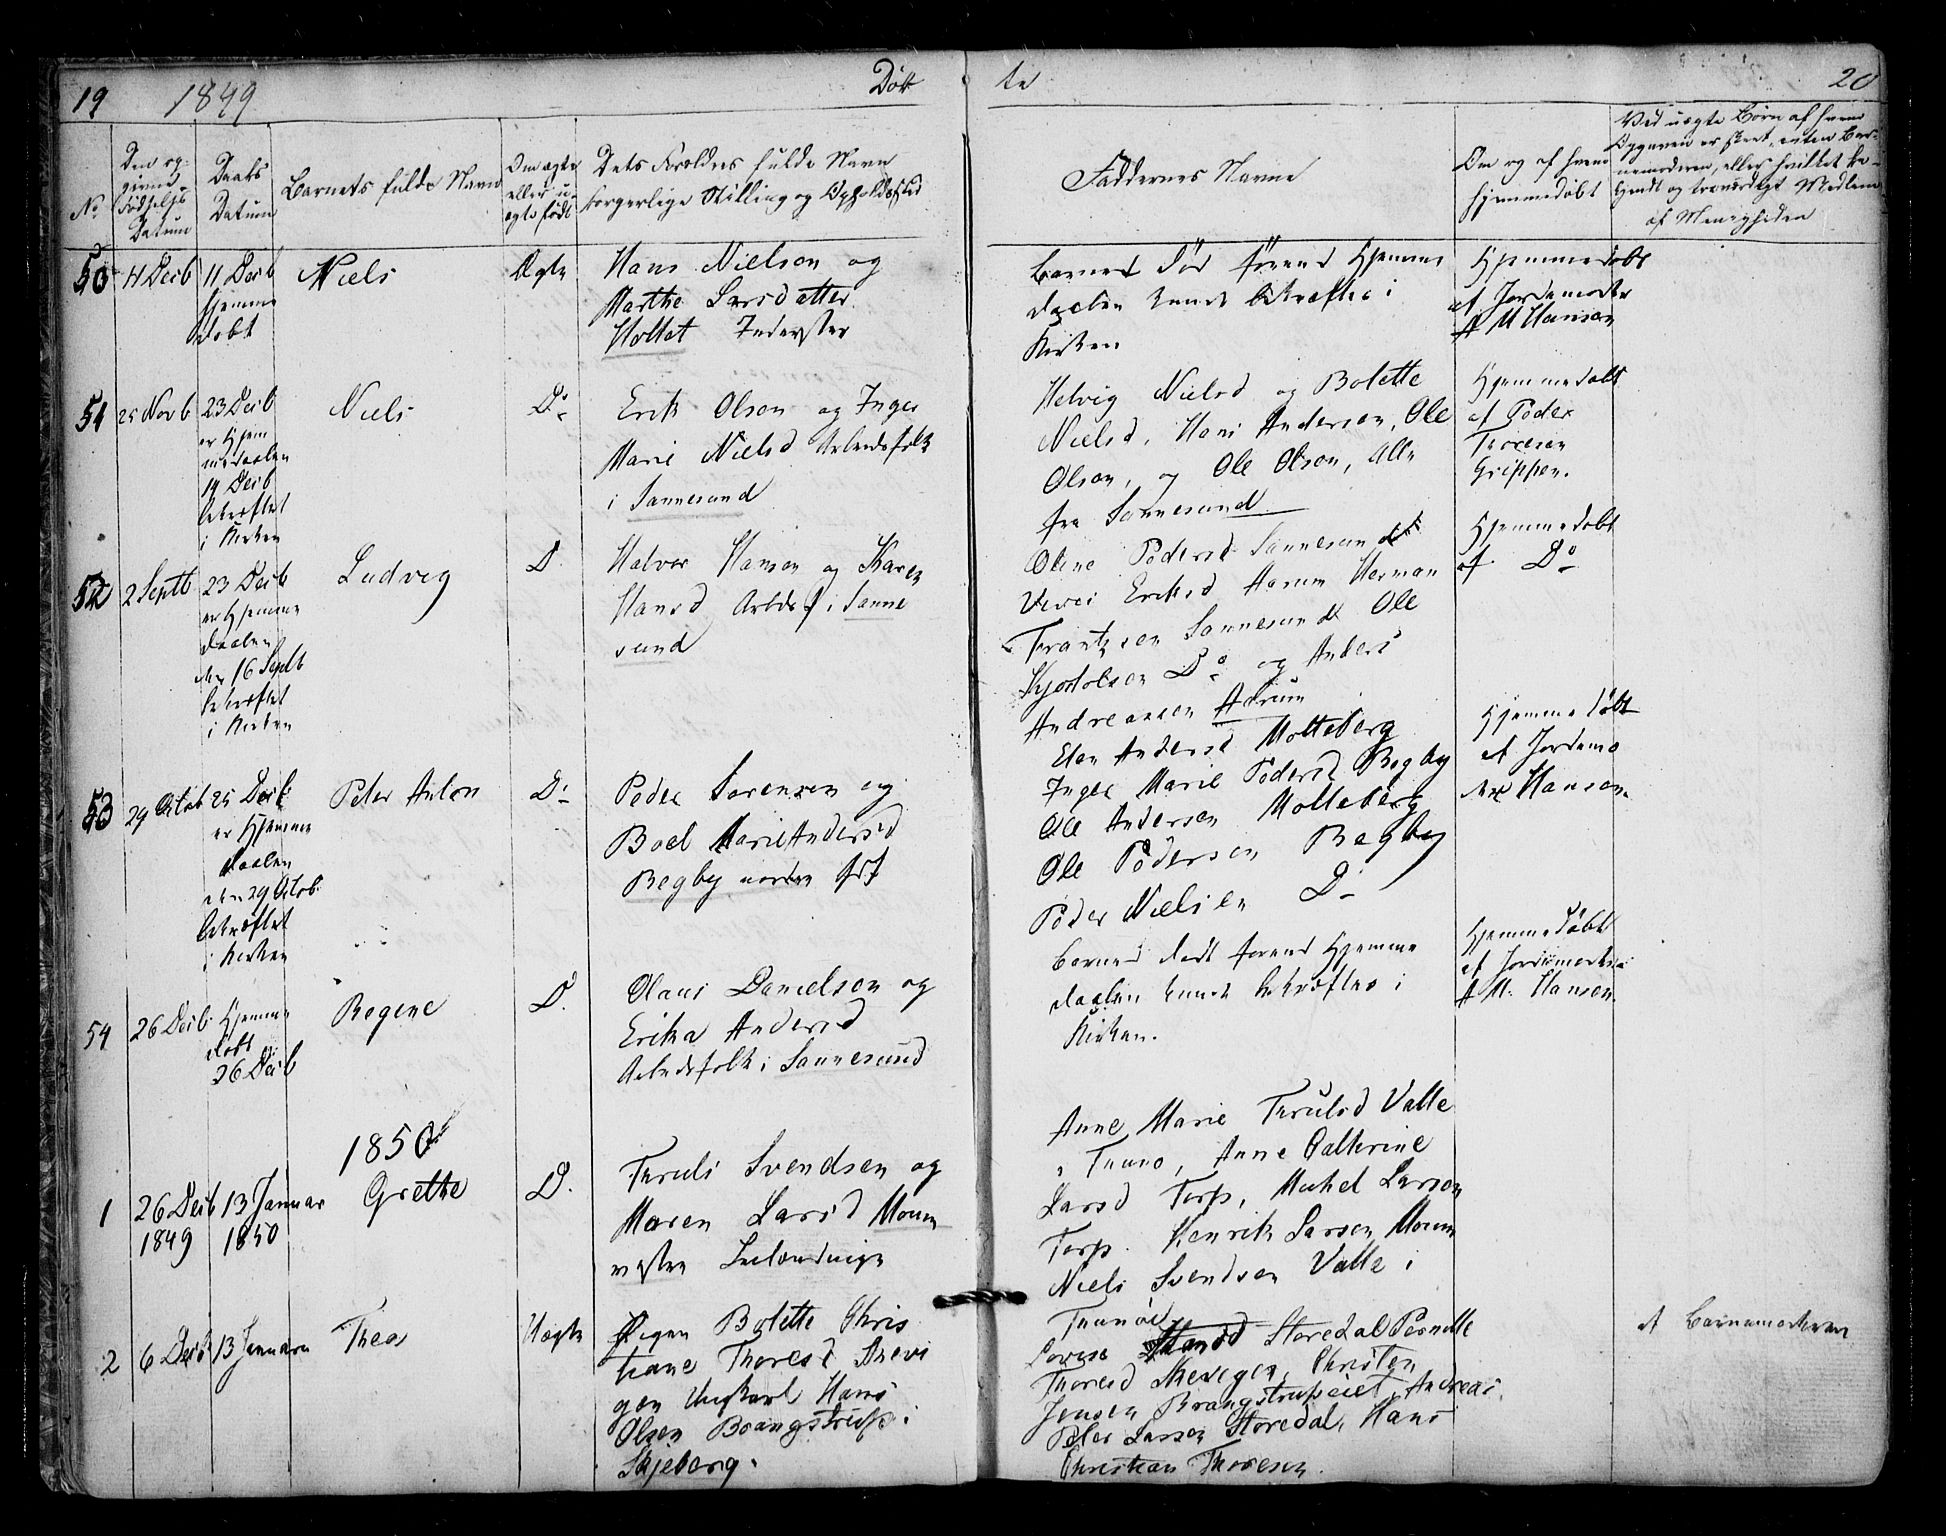 19 1849 Døb
te 20
No
Den op-
givne
Fødsels
Datum
Daabs
Datum
Barnets fulde Navn
Om ægte
eller u-
ægte født
Dets Forældres fulde Navn
borgerlige Stilling og Opholdssted
Faddernes Navne
Om og af hvem
hjemmedøbt
Ved uægte Børn af hvem
Opgaven er skeet, enten Bar-
nemoderen, eller hvilket be-
kjendt og troværdigt Medlem
af Menigheden
50
11 Decb
11 Decb
hjemme
døbt
Niels
Ægte
Hans Nielsen og
Marthe Larsdatter
Holtet Inderster
Barnet død førend Hjemme
daaben kunde bekræftes i
Kirken
Hjemmedøbt
af Jordemoder
A M Hansen
51
25 Novb
23 Decb
er Hjem
medaaben
19 Decb
bekræftet
i Kirken
Niels
Do
Erik Olsen og Inger
Marie Nielsd Arbeidsfolk
i Sannesund
Helvig Nielsd og Bolette
Nielsd, Hans Andersen, Ole
Olsen, og Ole Olsen, Alle
fra Sannesund
Hjemmedøbt
af Peder
Thoresen
Grippen.
52
2 Septb
23 Decb
er Hjemme
daaben
den 16 Septb
bekræftet
i Kirken
Ludvig
D.
Halvor Hansen og Karen
Hansd Arbdsf i Sanne
sund
Oline Pedersd Sannesund
Eriksd Harum Herman
Frantzsen Sannesund Ole
Kjostolsen Do og Anders
Andreassen Aarum
Hjemmedøbt
af Do
53
29 Octob
25 Decb
er Hjemme
daaben
den 29 Octob
bekræftet
i Kirken
Peter Anton
Do
Peder Sørensen og
Boel Marie Andersd
Begby nordre
Elen Andersd Molteberg
Inger Marie Pedersd Begby
Ole Andersen Molteberg
Ole Pedersen Begby
Peder Nielsen Do
Hjemmedøbt
af Jordemo
der Hansen.
54
26 Decb
Hjemme
døbt
26 Decb
Regine
D.
Olaus Danielsen og
Erika Andersd
Arbeidsfolk i Sannesund
Barnet dødt førend Hjemme
daaben kunde bekræftes i
Kirken.
Hjemmedøbt
af Jordemoder
A M. Hansen.
1850
1
26 Decb
1849
13 Januar
1850
Grethe
D.
Truls Svendsen og
Maren Larsd Moum
vestre
Anne Marie Trulsd Valle
i Tunø, Anne Cathrine
Larsd Torp, Mikel Larsen
Torp Henrik Larsen Moum
Niels Svendsen Valle i
Tunøe
2
6 Decb
13 Januar
Thea
Uægte
Pigen Bolette Chris
tiane Thoresd
gen Ungkarl Hans
Olsen Brangstrup i
Skjeberg.
Lovise Hansd Storedal Pernille
Thoresd Christen
Jensen Brangstrupeiet, Andreas
Peter Larsen Storedal, Hans
Christian Thoresen.
af Barnemoderen